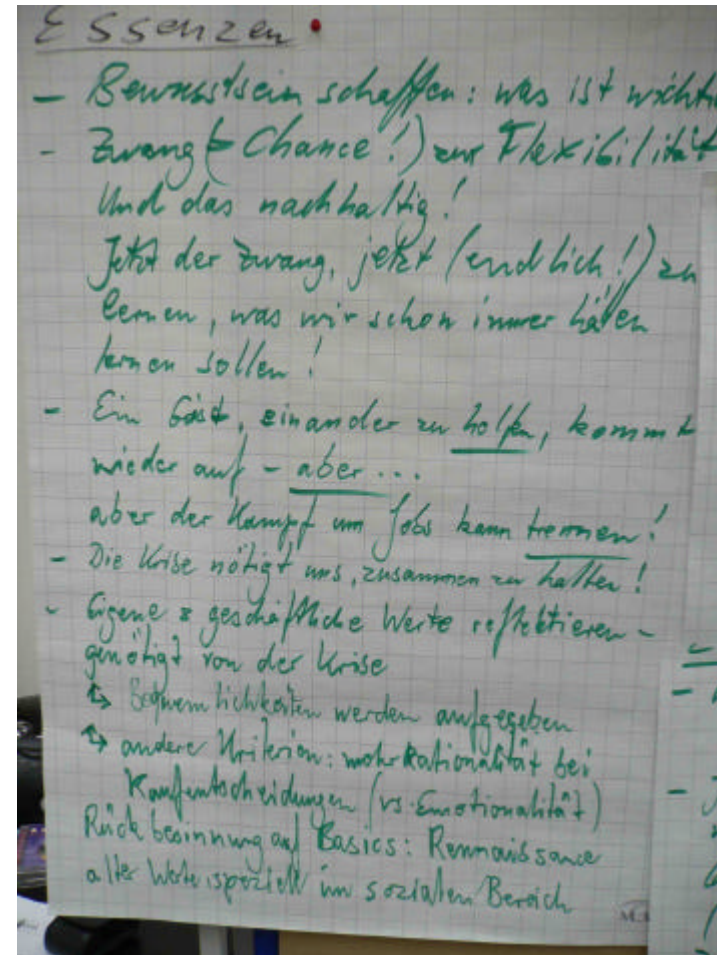 Essenzen
- Bewusstsein schaffen: was ist wichti
- Zwang (= Chance!) zur Flexibilität
Und das nachhaltig!
Jetzt der Zwang, jetzt (endlich!) zu
lernen, was wir schon immer häten
lernen sollen!
- Ein Geist, einander zu helfen, kommt
wieder auf - aber...
aber der Kampf um Jobs kann trennen!
- Die Krise nötigt uns, zusammen zu halten!
- Eigene & geschäftliche Werte reflektieren -
genötigt von der Krise
↳ Bequemlichkeiten werden aufgegeben
↳ andere Kriterien: mehr Rationalität bei
Kaufentscheidungen (vs. Emotionalität)
Rückbesinnung auf Basics: Rennaissance
alter Werte speziell im sozialen Bereich